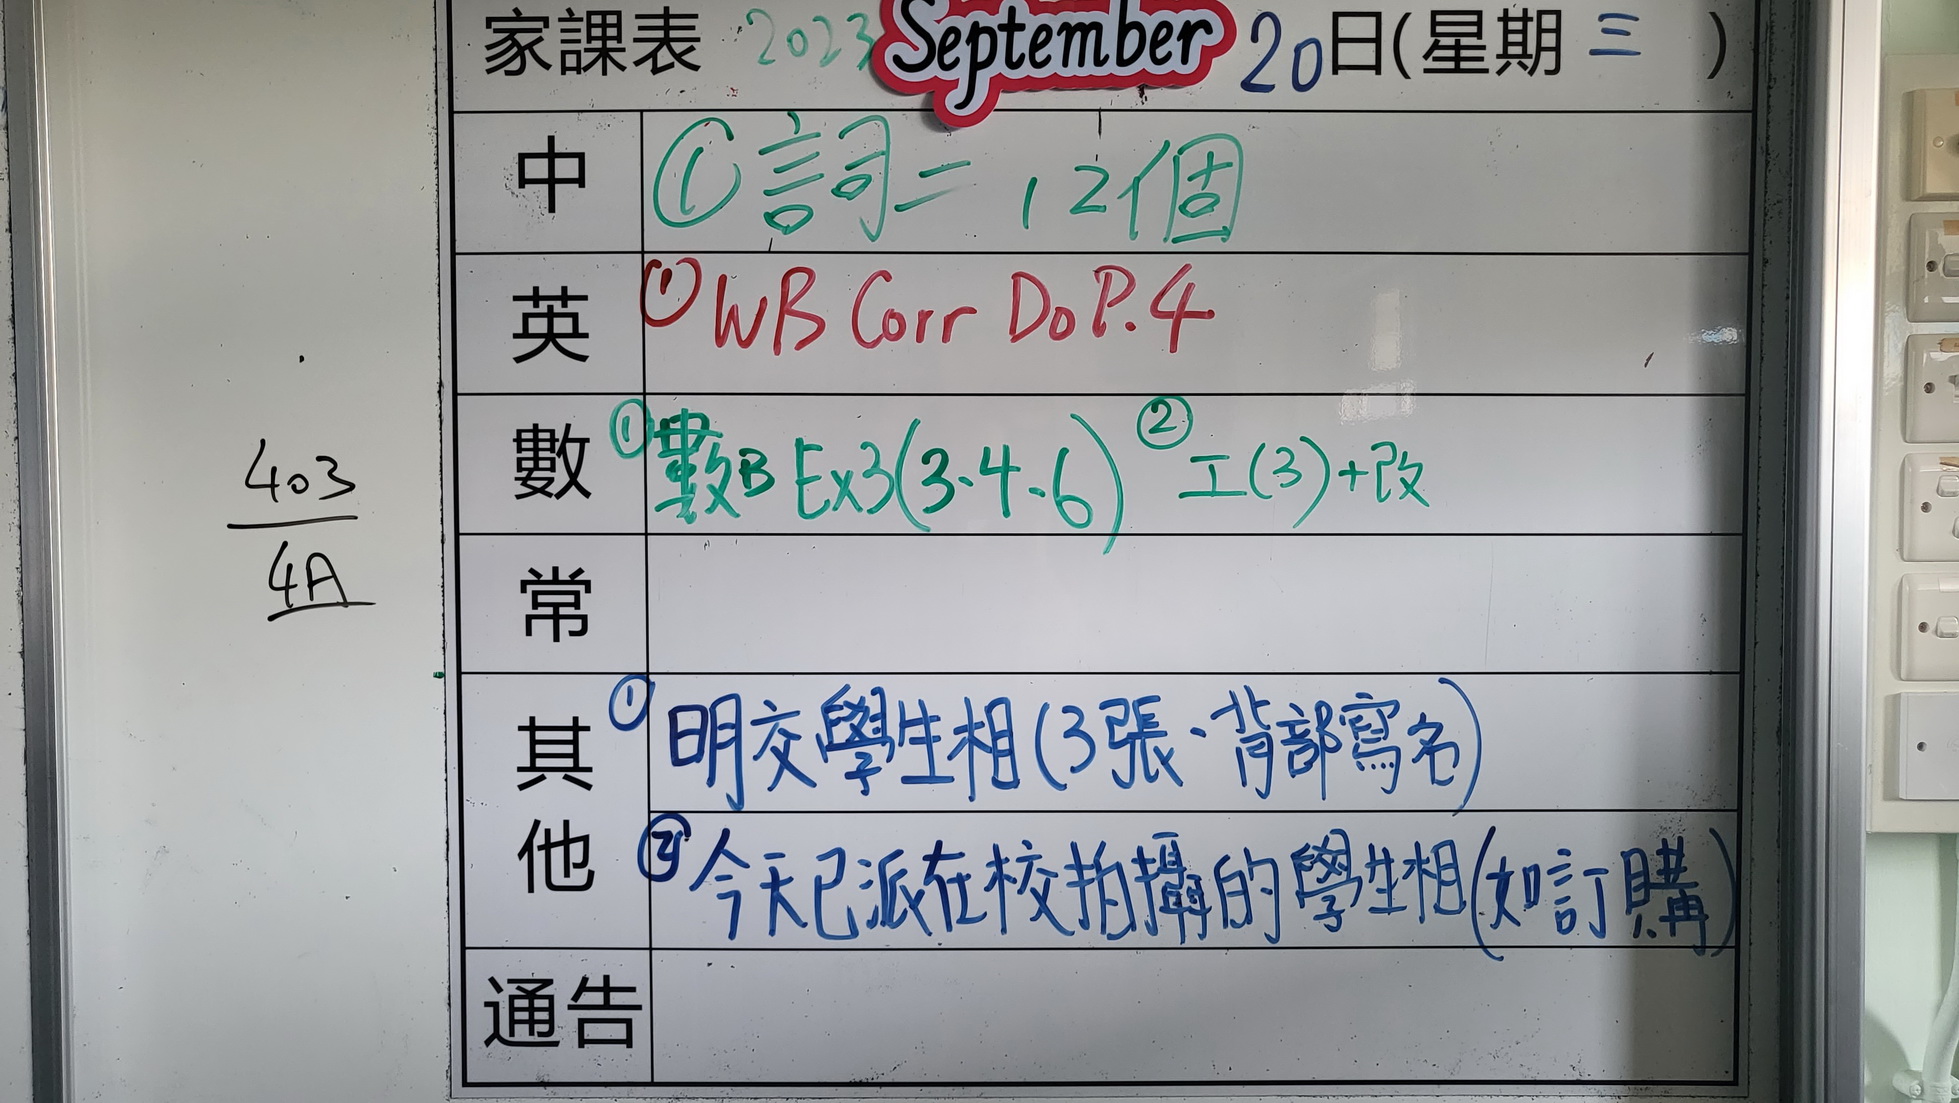 家課表 2023 September 20日(星期三)
中 ①詞二 12個
英 ①WB Corr Do P.4
數 ①數B Ex3(3、4、6) ②工(3)+改
常
其他
①明交學生相(3張、背部寫名)
②今天已派在校拍攝的學生相(如訂購)
通告
403
4A